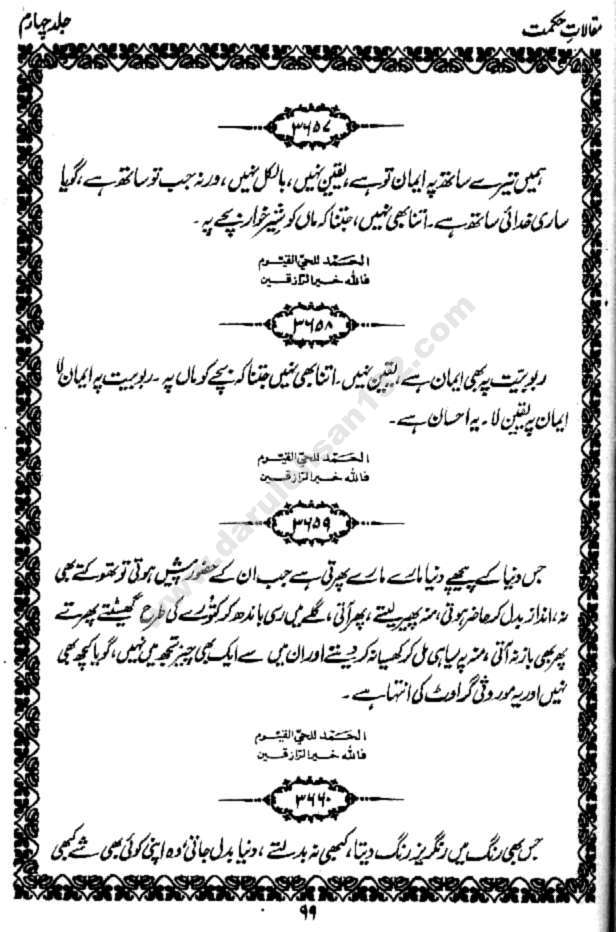 مقالاتِ حکمت
جلد چہارم
۳۶۵۷
ہمیں تیرے ساتھ پہ ایمان تو ہے، یقین نہیں، بالکل نہیں، ورنہ جب تو ساتھ ہے، گویا
ساری خدائی ساتھ ہے۔ اتنا بھی نہیں، جتنا کہ ماں کو شیر خوار بچے پہ۔
الحَمد للحيّ القيّوم
فاللہ خير الرّازقين
۳۶۵۸
ربوبیّت پہ بھی ایمان ہے، یقین نہیں۔ اتنا بھی نہیں جتنا کہ بچے کو ماں پہ۔ ربوبیت پہ ایمان لا
ایمان پر یقین لا۔ یہ احسان ہے۔
الحَمد للحيّ القيّوم
فاللہ خير الرّازقين
۳۶۵۹
جس دنیا کے پیچھے دنیا مارے مارے پھرتی ہے جب ان کے حضور پیش ہوتی تو تھوکتے بھی
نہ، انداز بدل کر حاضر ہوتی، منہ پھیر لیتے، پھر آتی، گلے میں رسی باندھ کر کتورے کی طرح گھسیٹتے پھرتے
پھر بھی باز نہ آتی، منہ پہ سیاہی مل کر کھسیانہ کر دیتے اور ان میں سے ایک بھی چیز تجھ میں نہیں، گویا کچھ بھی
نہیں اور یہ موروثی گراوٹ کی انتہا ہے۔
الحَمد للحيّ القيّوم
فاللہ خير الرّازقين
۳۶۶۰
جس بھی رنگ میں رنگریز رنگ دیتا، کبھی نہ بدلتے، دنیا بدل جاتی وہ اپنی کوئی بھی شے کبھی
۹۹
www.darulehsan182.com